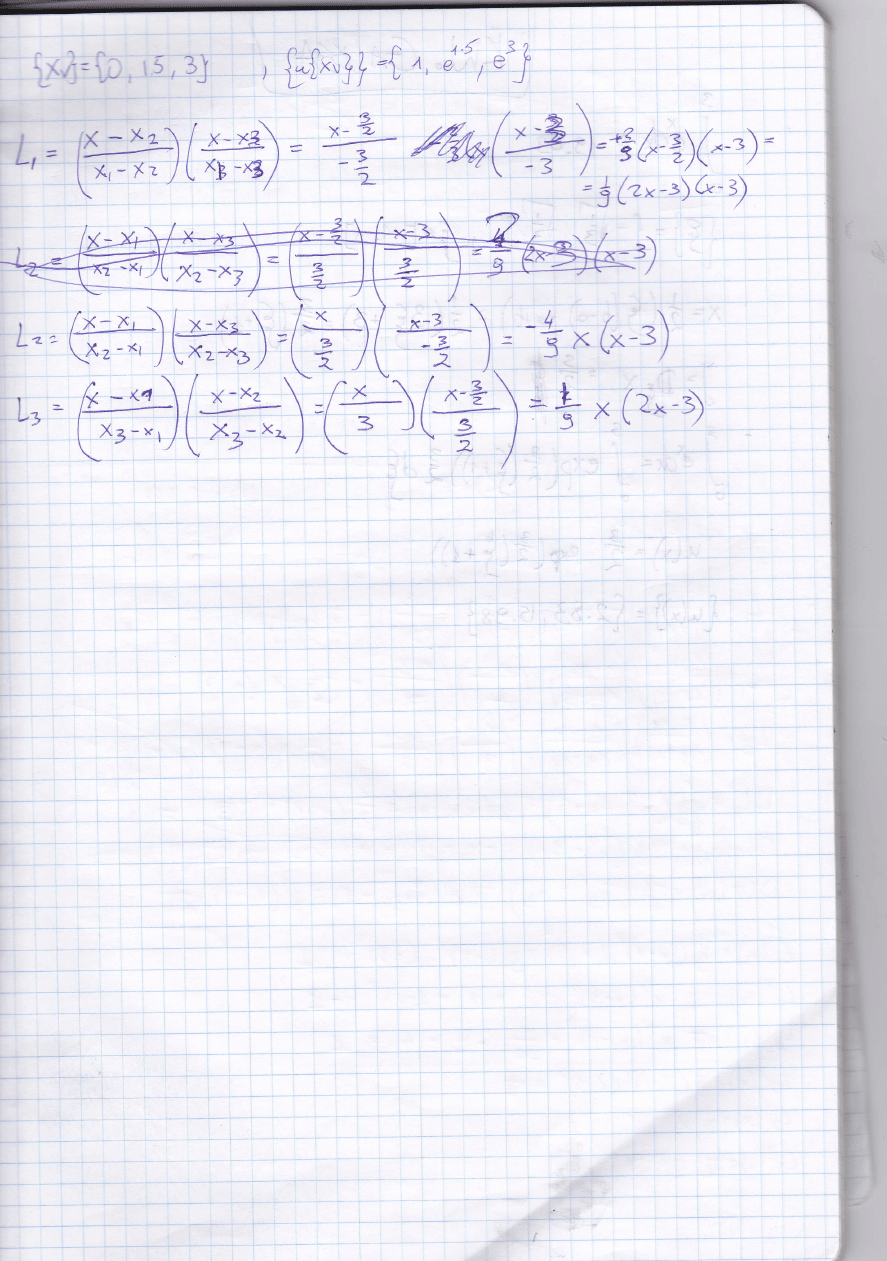 {xν}={0, 1.5, 3} , {u{xν}}={1, e^1.5, e^3}
L₁ = ((x - x₂)/(x₁ - x₂)) ((x - x₃)/(x₁ - x₃)) = (x - 3/2)/(-3/2) ((x - 3)/(-3)) = +2/9 (x - 3/2)(x - 3) =
= 1/9 (2x - 3)(x - 3)
L₂ = ((x - x₁)/(x₂ - x₁)) ((x - x₃)/(x₂ - x₃)) = ((x - 3/2)/(3/2)) ((x - 3)/(3/2)) = /9 (2x - 3)(x - 3)
L₂ = ((x - x₁)/(x₂ - x₁)) ((x - x₃)/(x₂ - x₃)) = (x/(3/2)) ((x - 3)/(-3/2)) = -4/9 x (x - 3)
L₃ = ((x - x₁)/(x₃ - x₁)) ((x - x₂)/(x₃ - x₂)) = (x/3) ((x - 3/2)/(3/2)) = 1/9 x (2x - 3)